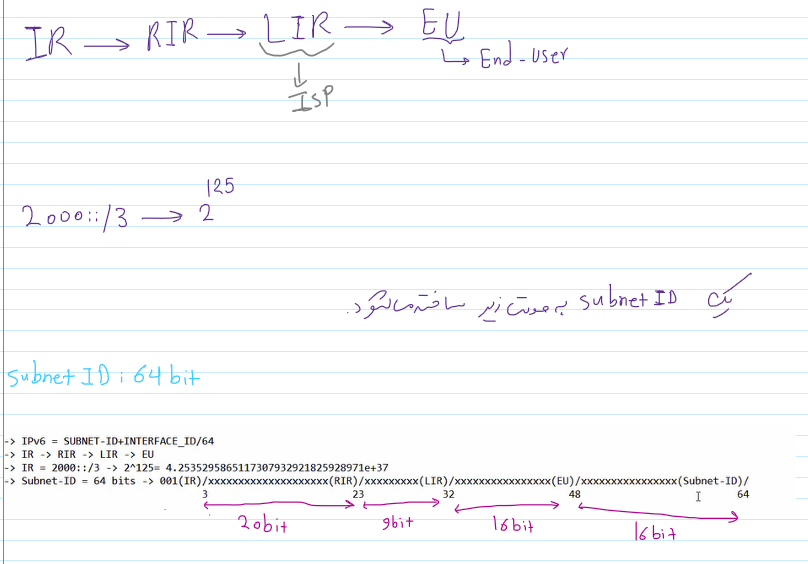 IR → RIR → LIR → EU
↳ End-User
ISP
125
2000::/3 → 2
یک subnet ID به صورت زیر ساخته می‌شود.
Subnet ID: 64 bit
-> IPv6 = SUBNET-ID+INTERFACE_ID/64
-> IR -> RIR -> LIR -> EU
-> IR = 2000::/3 -> 2^125= 4.2535295865117307932921825928971e+37
-> Subnet-ID = 64 bits -> 001(IR)/xxxxxxxxxxxxxxxxxxxx(RIR)/xxxxxxxxx(LIR)/xxxxxxxxxxxxxxxx(EU)/xxxxxxxxxxxxxxxx(Subnet-ID)/
3 23 32 48 64
20bit 9bit 16bit 16bit